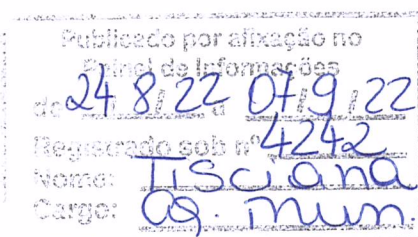 Publicado por afixação no
Painel de Informações
de 24/8/22 a 07/9/22
Registrado sob nº 4242
Nome: Tisciana
Cargo: ag. mun.